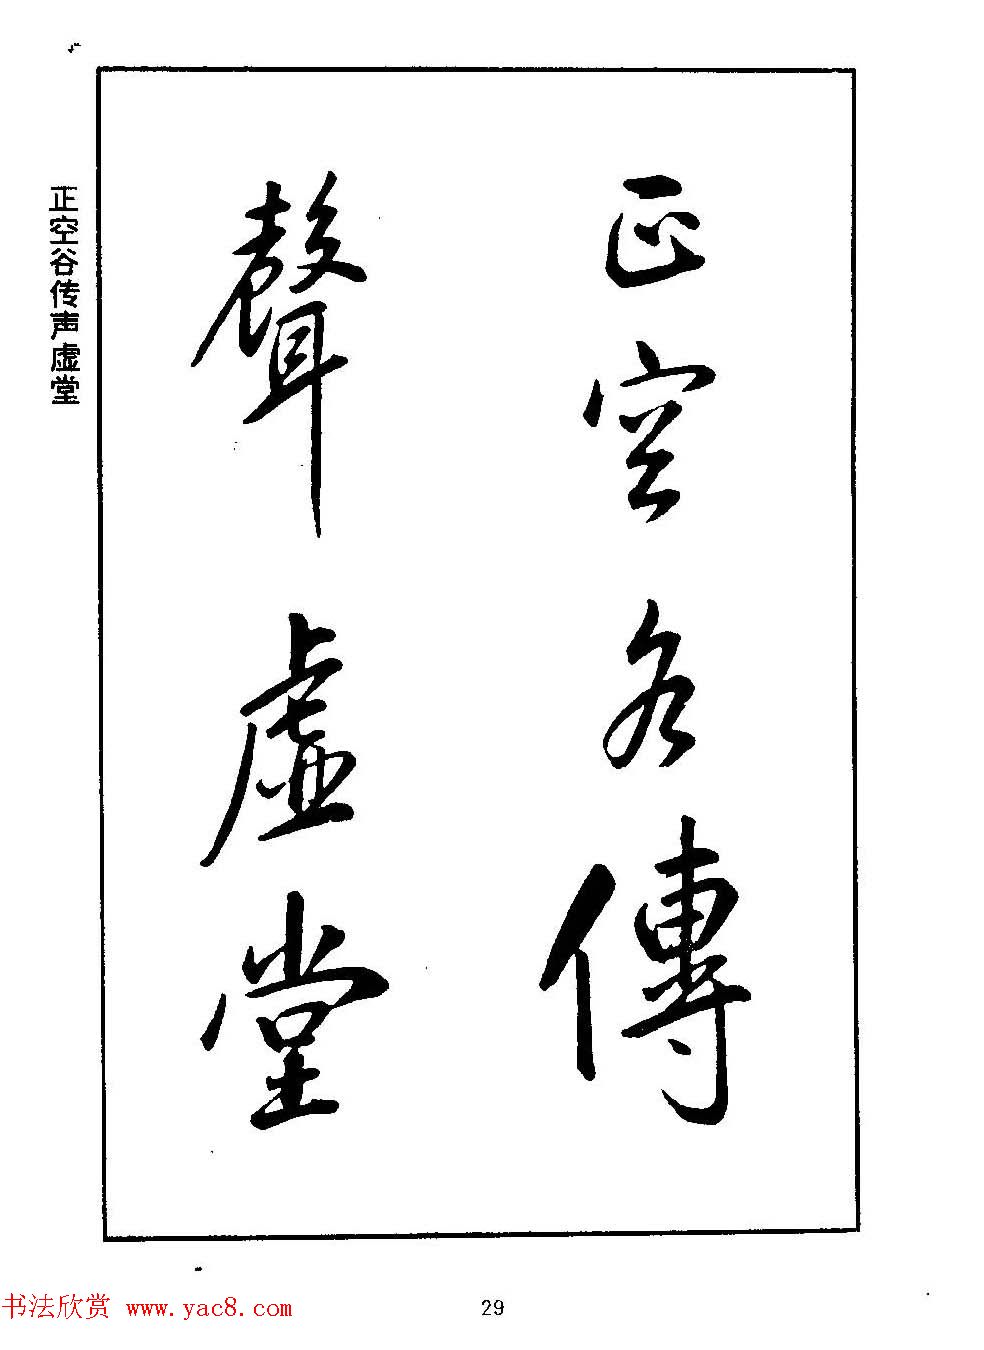 正空谷傳
聲虛堂
正空谷传声虚堂
书法欣赏 www.yac8.com
29